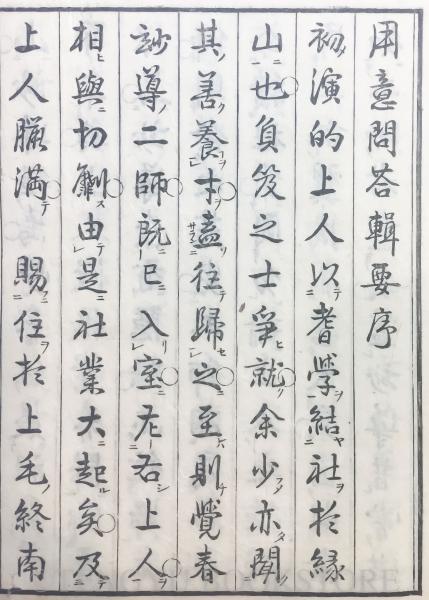 用意問答輯要序
初演的上人以耆學結社於縁
山也負笈之士爭就余少亦聞
其善養才盍往歸之至則覺春
玅導二師既已入室左右上人
相與切劘由是社業大起矣及
上人臘滿賜住於上毛終南